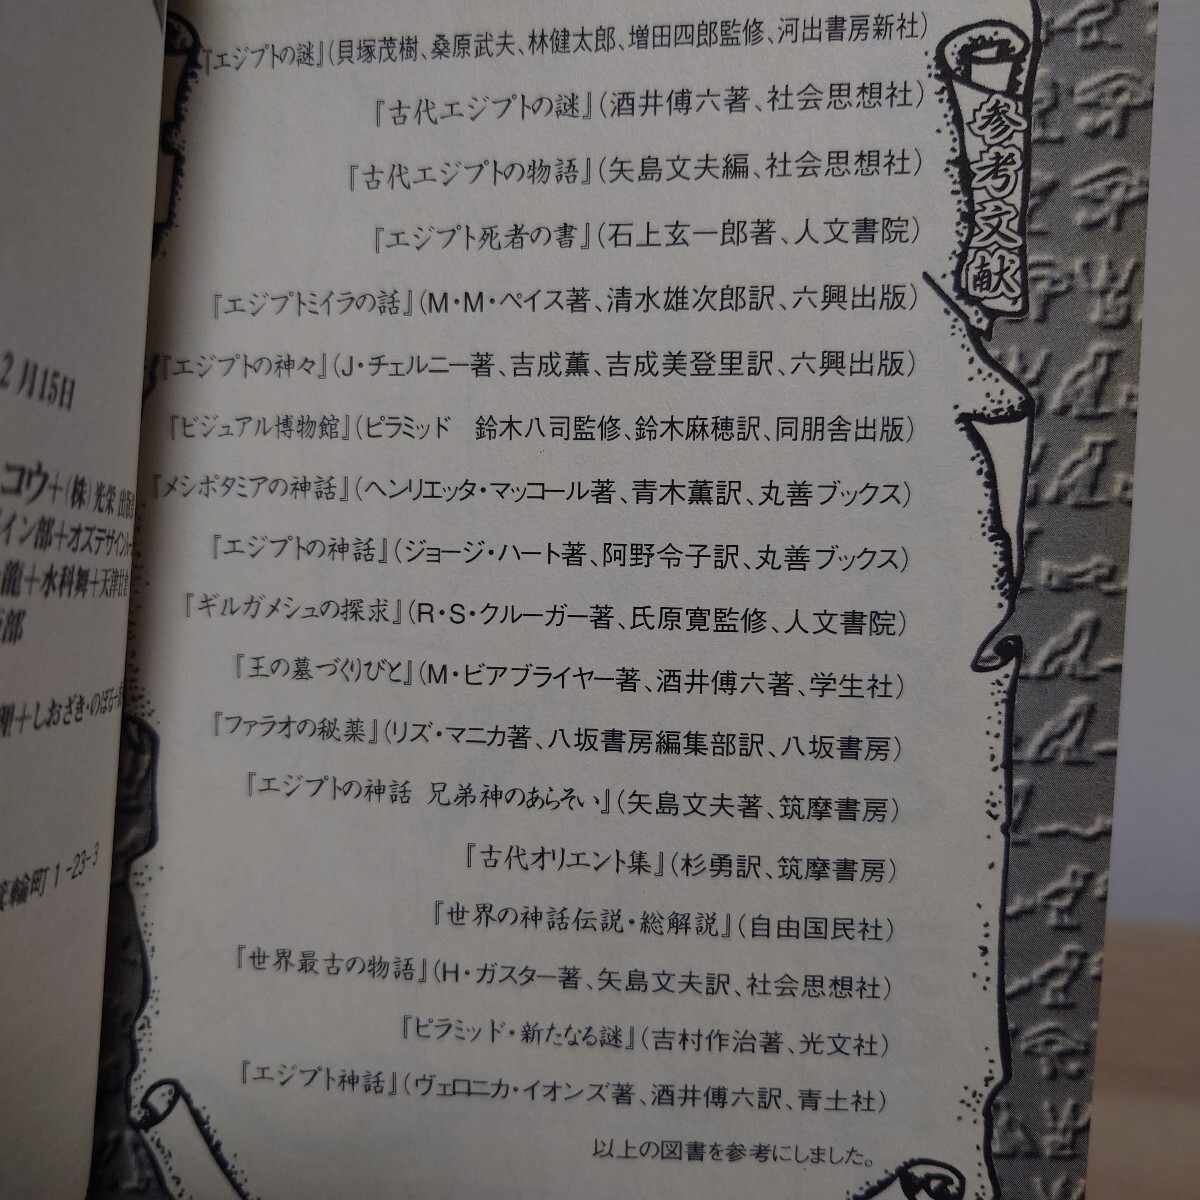 参考文献
『エジプトの謎』(貝塚茂樹、桑原武夫、林健太郎、増田四郎監修、河出書房新社)
『古代エジプトの謎』(酒井傳六著、社会思想社)
『古代エジプトの物語』(矢島文夫編、社会思想社)
『エジプト死者の書』(石上玄一郎著、人文書院)
『エジプトミイラの話』(M・M・ペイス著、清水雄次郎訳、六興出版)
『エジプトの神々』(J・チェルニー著、吉成薫、吉成美登里訳、六興出版)
『ビジュアル博物館』(ピラミッド 鈴木八司監修、鈴木麻穂訳、同朋舎出版)
『メソポタミアの神話』(ヘンリエッタ・マッコール著、青木薫訳、丸善ブックス)
『エジプトの神話』(ジョージ・ハート著、阿野令子訳、丸善ブックス)
『ギルガメシュの探求』(R・S・クルーガー著、氏原寛監修、人文書院)
『王の墓づくりびと』(M・ビアブライヤー著、酒井傳六著、学生社)
『ファラオの秘薬』(リズ・マニカ著、八坂書房編集部訳、八坂書房)
『エジプトの神話 兄弟神のあらそい』(矢島文夫著、筑摩書房)
『古代オリエント集』(杉勇訳、筑摩書房)
『世界の神話伝説・総解説』(自由国民社)
『世界最古の物語』(H・ガスター著、矢島文夫訳、社会思想社)
『ピラミッド・新たなる謎』(吉村作治著、光文社)
『エジプト神話』(ヴェロニカ・イオンズ著、酒井傳六訳、青土社)
以上の図書を参考にしました。
2月15日
コウ+(株)光栄 出版
イン部+オズデザイン
龍+水科舞+天津甘
部
聖+しおざき・のぼる+
箕輪町1-23-3